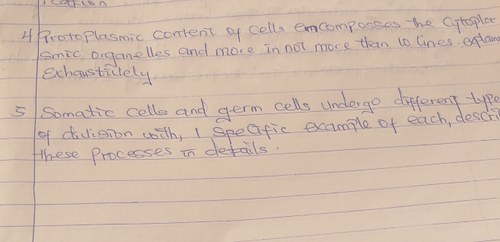 4 Protoplasmic content of cells emcomposses the cytoplas
smic organelles and more in not more than 10 lines. explain
Exhaustively
5 Somatic cells and germ cells undergo different type
of division with, 1 specific example of each, descri
these processes in details.